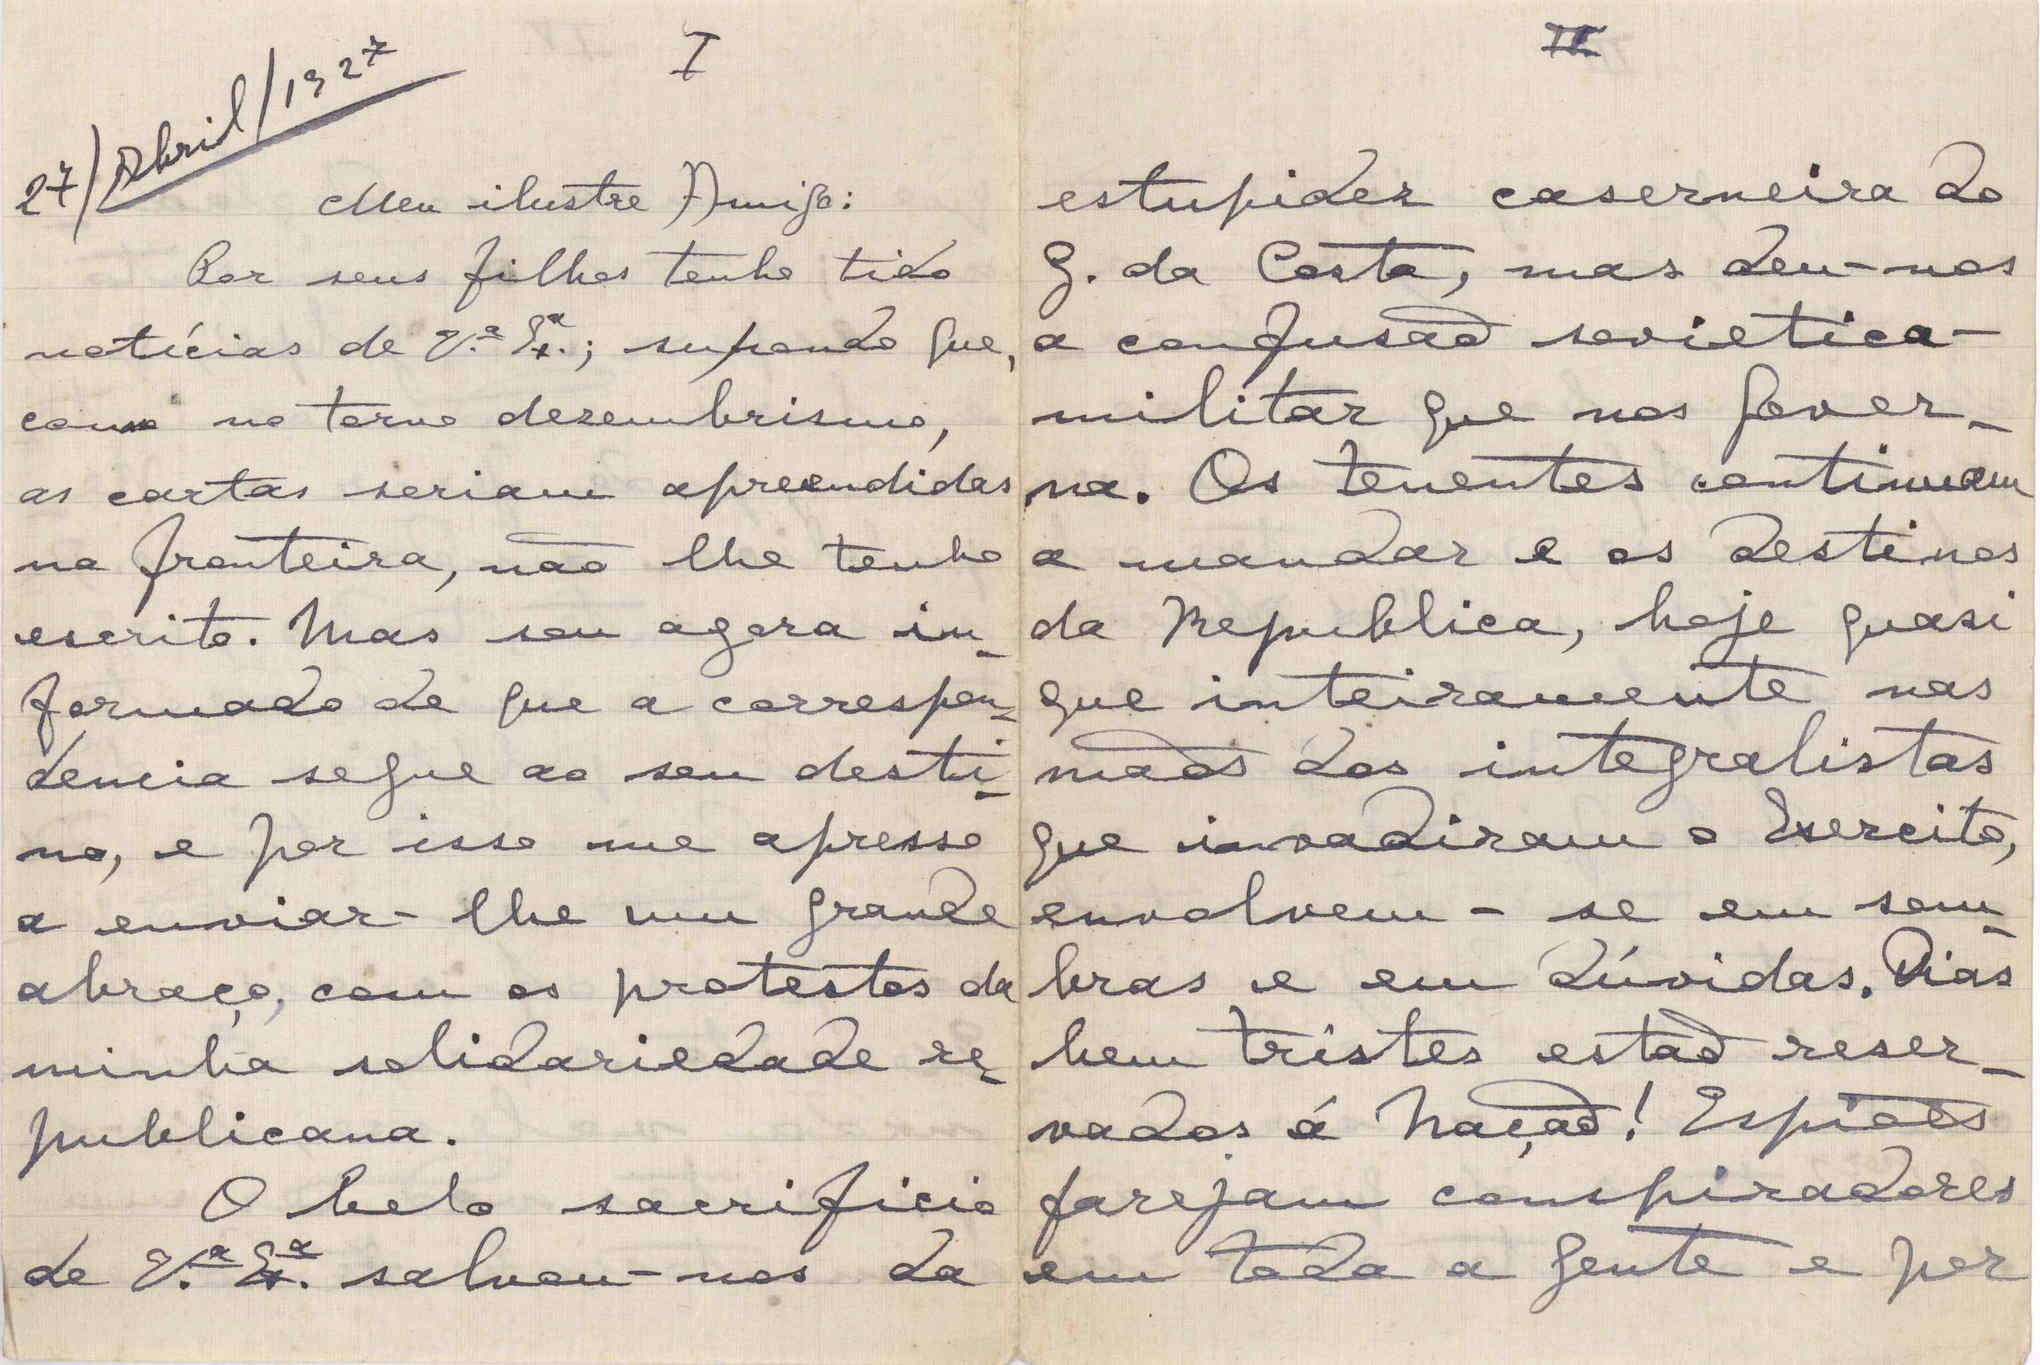 I
27/Abril/1927
Meu ilustre Amigo:
Por seus filhos tenho tido
notícias de V.ª Ex.ª; supondo que,
como no torvo dezembrismo,
as cartas seriam apreendidas
na fronteira, não lhe tenho
escrito. Mas sou agora in-
formado de que a correspon-
dencia segue ao seu desti-
no, e por isso me apresso
a enviar-lhe um grande
abraço, com os protestos da
minha solidariedade re-
publicana.
O belo sacrificio
de V.ª Ex.ª salvou-nos da
II
estupidez caserneira do
G. da Costa, mas deu-nos
a confusão sovietica-
militar que nos gover-
na. Os tenentes continuam
a mandar e os destinos
da Republica, hoje quasi
que inteiramente nas
mãos dos integralistas
que invadiram o Exercito,
envolvem-se em som-
bras e em dúvidas. Dias
bem tristes estão reser-
vados á Nação! Espiões
farejam conspiradores
em toda a gente e por